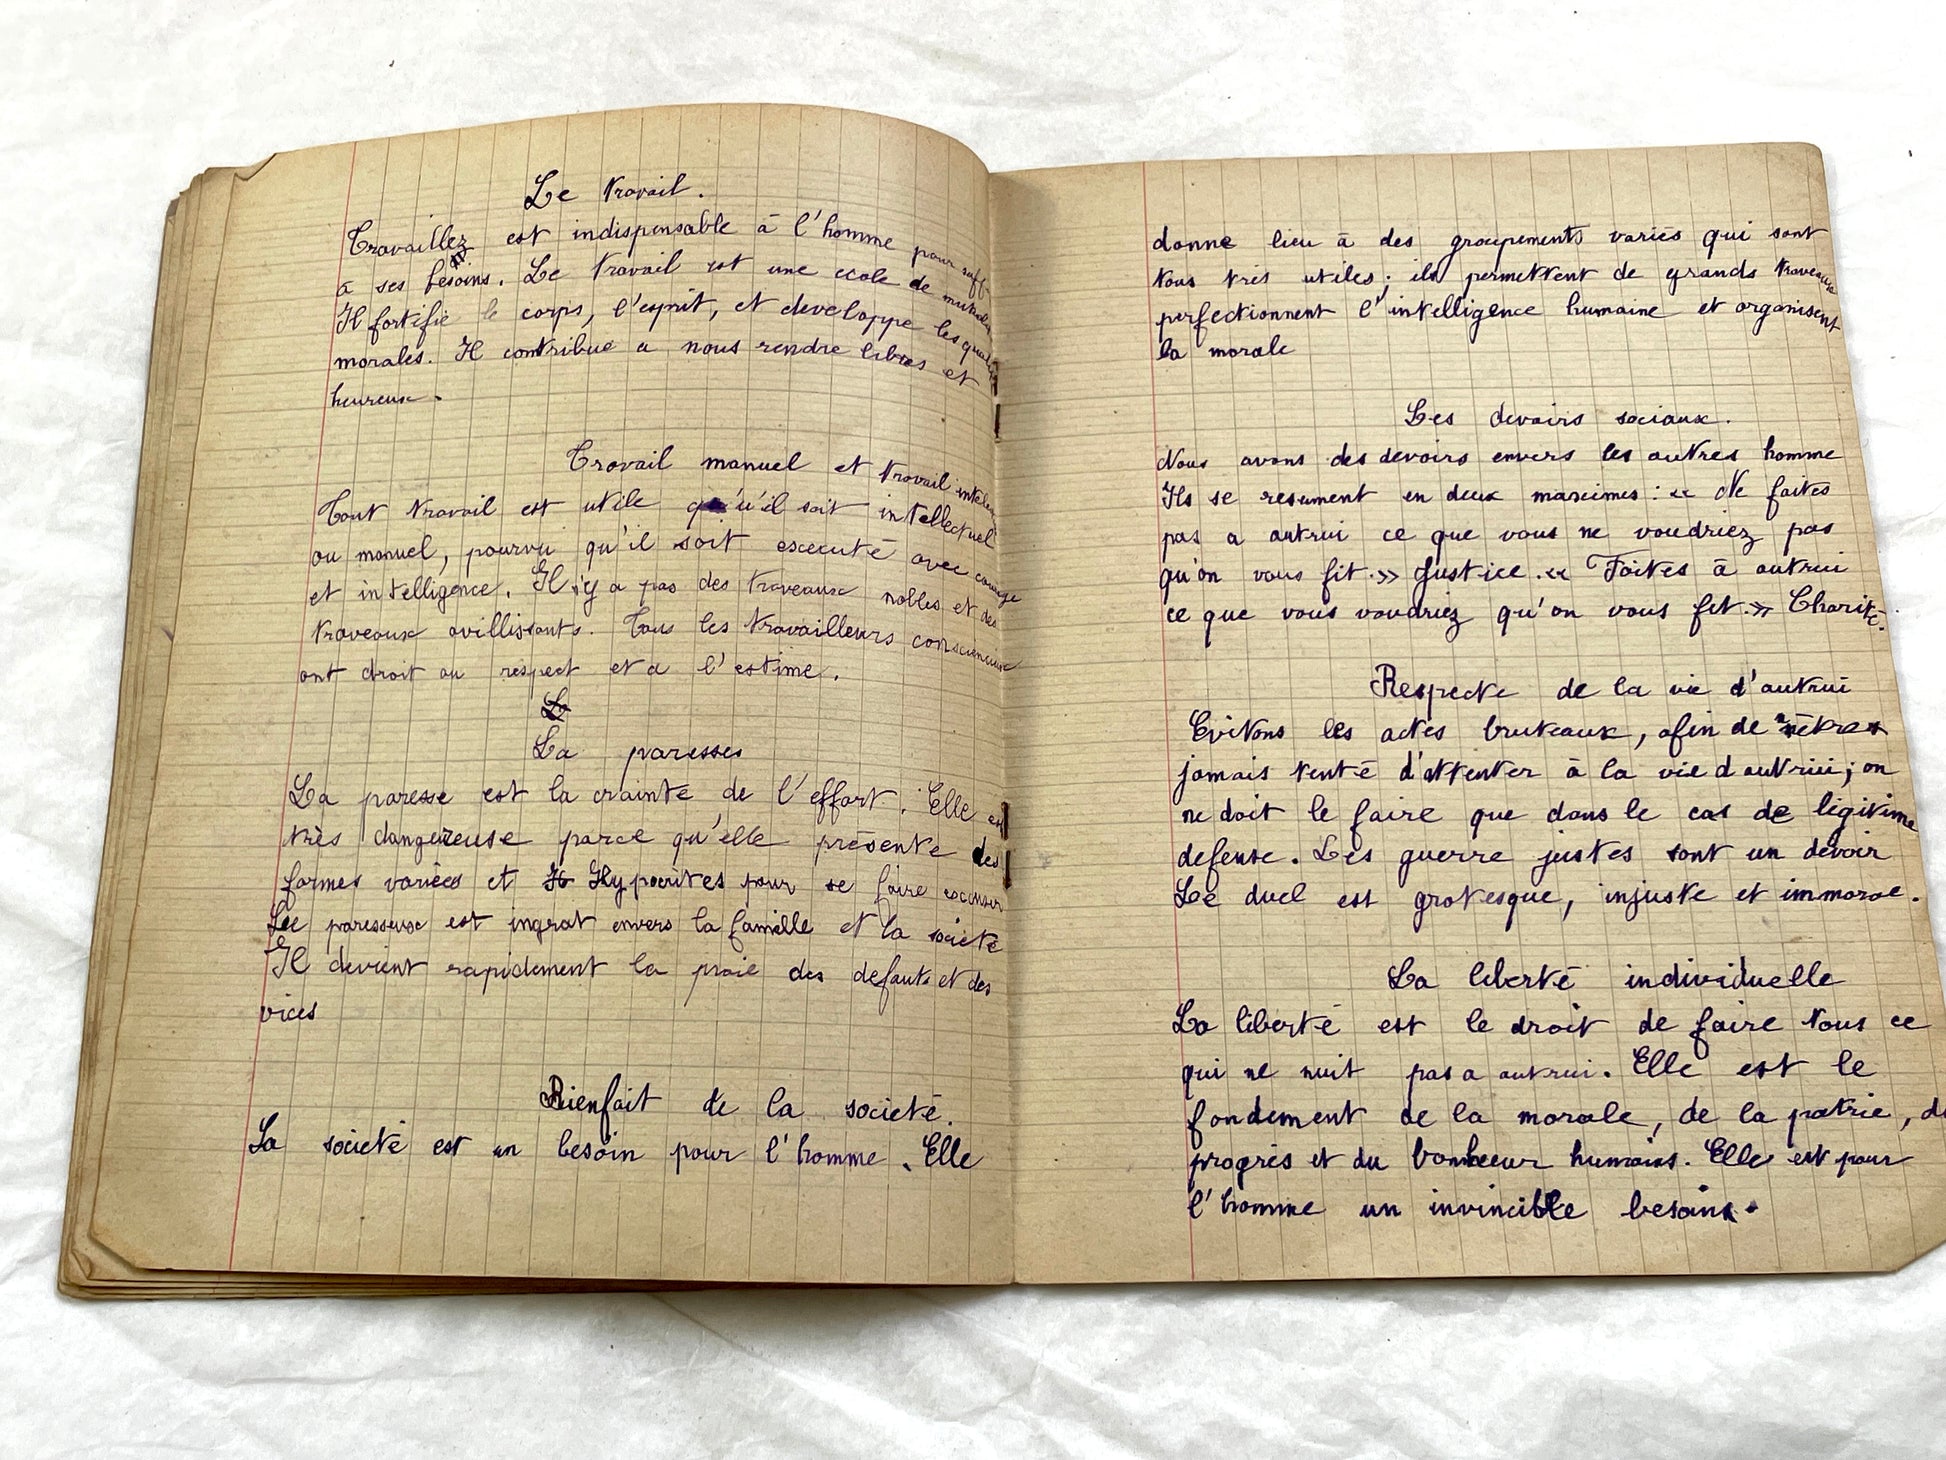 Le travail.
Travaillez est indispensable à l'homme pour suff
à ses besoins. Le travail est une ecole de
Il fortifie le corps, l'esprit, et developpe les qual
morales. Il contribue a nous rendre libres et
heureux.
Travail manuel et travail intel
Tout travail est utile qu'il soit intellectuel
ou manuel, pourvu qu'il soit executé avec courage
et intelligence. Il n'y a pas des traveaux nobles et des
traveaux avillissants. Tous les travailleurs consciencieux
ont droit au respect et a l'estime.
La paresses
La paresse est la crainte de l'effort. Elle est
très dangereuse parce qu'elle présente des
formes variées et Hypocrites pour se faire excuser
Le paresseux est ingrat envers la famille et la societé
Il devient rapidement la proie des defauts et des
vices
Bienfait de la societé.
La societé est un besoin pour l'homme. Elle
donne lieu à des groupements variés qui sont
tous très utiles; ils permettent de grands traveaux
perfectionnent l'intelligence humaine et organisent
la morale
Les devoirs sociaux.
Nous avons des devoirs envers les autres homme
Ils se resument en deux maximes : « Ne faites
pas a autrui ce que vous ne voudriez pas
qu'on vous fit. » Justice. « Faites à autrui
ce que vous voudriez qu'on vous fit. » Charité.
Respecte de la vie d'autrui
Evitons les actes bruteaux, afin de n'être
jamais tenté d'attenter à la vie d'autrui; on
ne doit le faire que dans le cas de légitime
defense. Les guerre justes sont un devoir
Le duel est grotesque, injuste et immoral.
La liberté individuelle
La liberté est le droit de faire tous ce
qui ne nuit pas a autrui. Elle est le
fondement de la morale, de la patrie, du
progrès et du bonheur humains. Elle est pour
l'homme un invincible besoin.